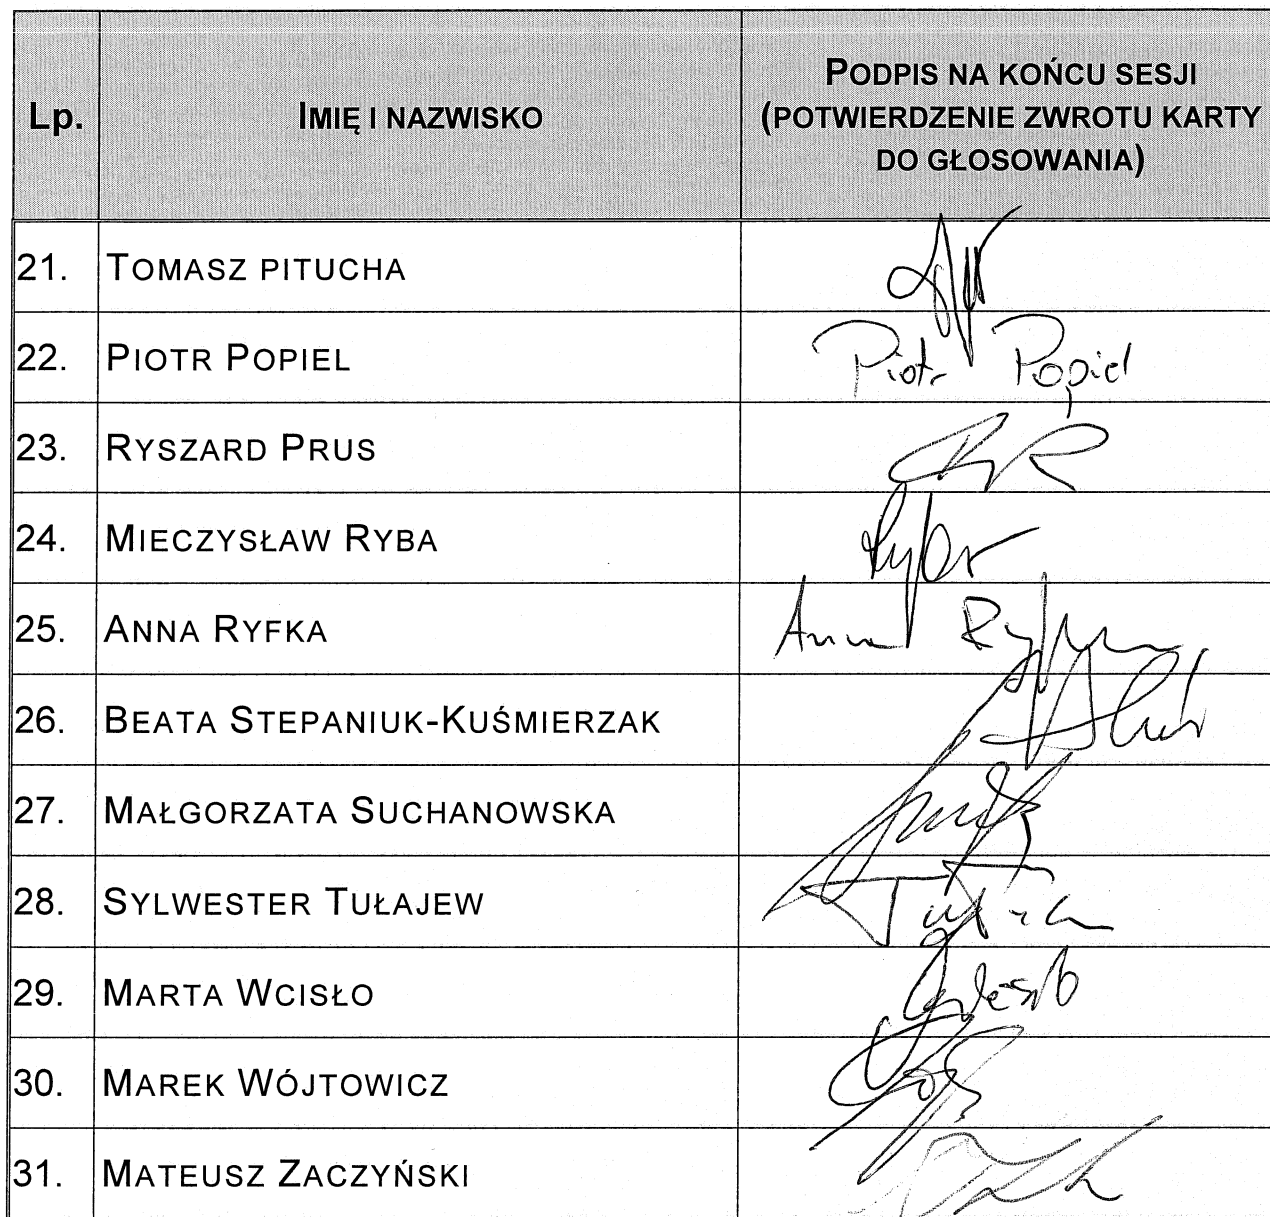 Lp. IMIĘ I NAZWISKO PODPIS NA KOŃCU SESJI
(POTWIERDZENIE ZWROTU KARTY
DO GŁOSOWANIA)
21. TOMASZ PITUCHA
22. PIOTR POPIEL Piotr Popiel
23. RYSZARD PRUS
24. MIECZYSŁAW RYBA
25. ANNA RYFKA Anna Ryfka
26. BEATA STEPANIUK-KUŚMIERZAK
27. MAŁGORZATA SUCHANOWSKA
28. SYLWESTER TUŁAJEW
29. MARTA WCISŁO
30. MAREK WÓJTOWICZ
31. MATEUSZ ZACZYŃSKI